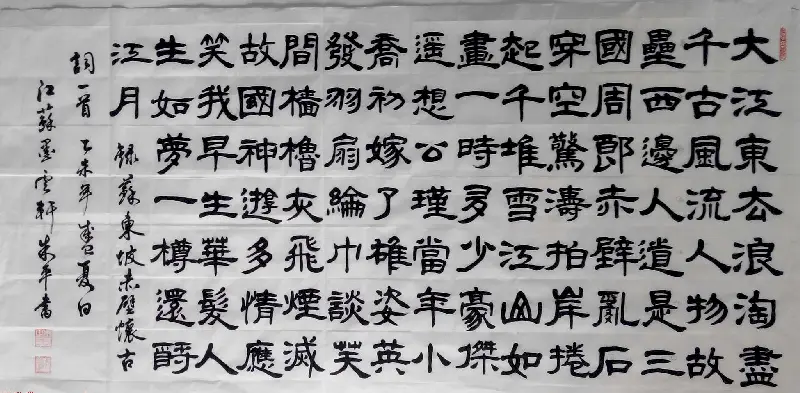 大江東去浪淘盡
千古風流人物故
壘西邊人道是三
國周郎赤壁亂石
穿空驚濤拍岸捲
起千堆雪江山如
畫一時多少豪傑
遥想公瑾當年小
喬初嫁了雄姿英
發羽扇綸巾談笑
間檣櫓灰飛煙滅
故國神遊多情應
笑我早生華髮人
生如夢一樽還酹
江月
録蘇東坡赤壁懷古
詞一首 乙未年盛夏日
江蘇墨雲軒朱平書